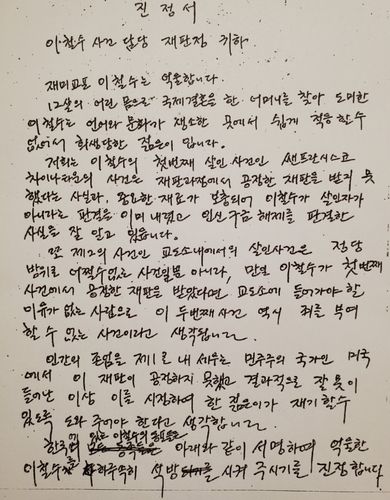 진정서
이철수 사건 담당 재판정 귀하
재미교포 이철수는 억울합니다.
12살의 어린 몸으로 국제결혼을 한 어머니를 찾아 도미한
이철수는 언어와 문화가 생소한 곳에서 쉽게 적응할 수
없어서 희생당한 젊은이 입니다.
저희는 이철수의 첫번째 살인사건인 쌘프란시스코
차이나타운의 사건은 재판과정에서 공정한 재판을 받지 못
했다는 사실과, 중요한 재료가 보충되어 이철수가 살인자가
아니라는 판결을 이미 내렸고 인신구금 해제를 판결한
사실을 잘 알고 있읍니다.
또 제2의 사건인 교도소내에서의 살인사건은 정당
방위로 어쩔수없는 사건일뿐 아니라, 만일 이철수가 첫번째
사건에서 공정한 재판을 받았다면 교도소에 들어가야 할
이유가 없는 사람으로 이 두번째 사건 역시 죄를 부여
할 수 없는 사건이라고 생각됩니다.
인간의 존엄을 제1로 내세우는 민주주의 국가인 미국
에서 이 재판이 공정하지 못했고 결과적으로 잘못이
들어난 이상 이를 시정하여 한 젊은이가 재기할 수
있도록 도와 주어야 한다고 생각합니다.
한국에 있는 이철수의 동포들은
아래와 같이 서명하여 억울한
이철수를 조속히 석방시켜 주시기를 진정합니다.